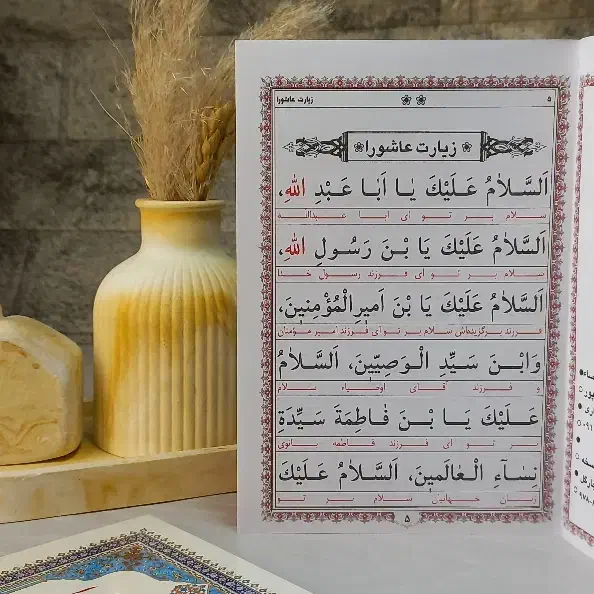 زیارت عاشورا
۵
زیارت عاشورا
اَلسَّلاٰمُ عَلَیْکَ یٰا اَبٰا عَبْدِ اللهِ،
سلام بر تو ای ابا عبدالله
اَلسَّلاٰمُ عَلَیْکَ یَا بْنَ رَسُولِ اللهِ،
سلام بر تو ای فرزند رسول خدا
اَلسَّلاٰمُ عَلَیْکَ یَا بْنَ اَمیرِالْمُؤْمِنینَ،
فرزند برگزیده‌اش سلام بر تو ای فرزند امیر مؤمنان
وَابْنَ سَیِّدِ الْوَصِیّینَ، اَلسَّلاٰمُ
و فرزند آقای اوصیاء سلام
عَلَیْکَ یَا بْنَ فٰاطِمَةَ سَیِّدَةِ
بر تو ای فرزند فاطمه بانوی
نِسٰاءِ الْعٰالَمینَ، اَلسَّلاٰمُ عَلَیْکَ
زنان جهانیان سلام بر تو
۵